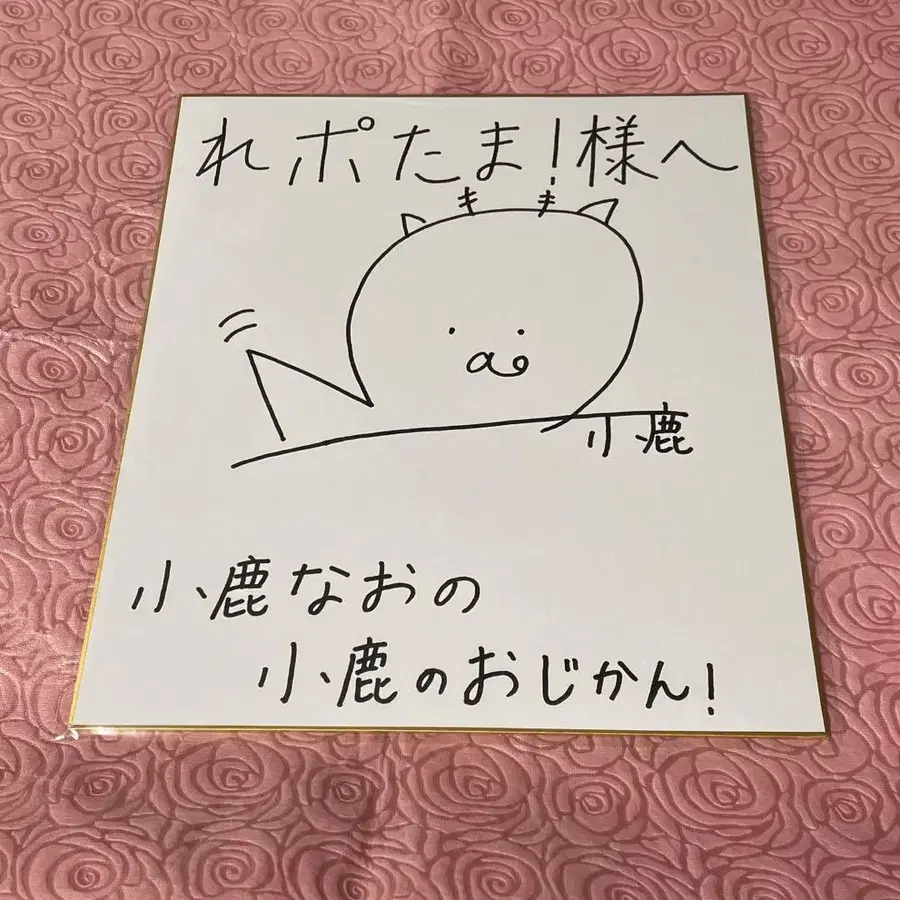 れポたま!様へ
小鹿
小鹿なおの
小鹿のおじかん!